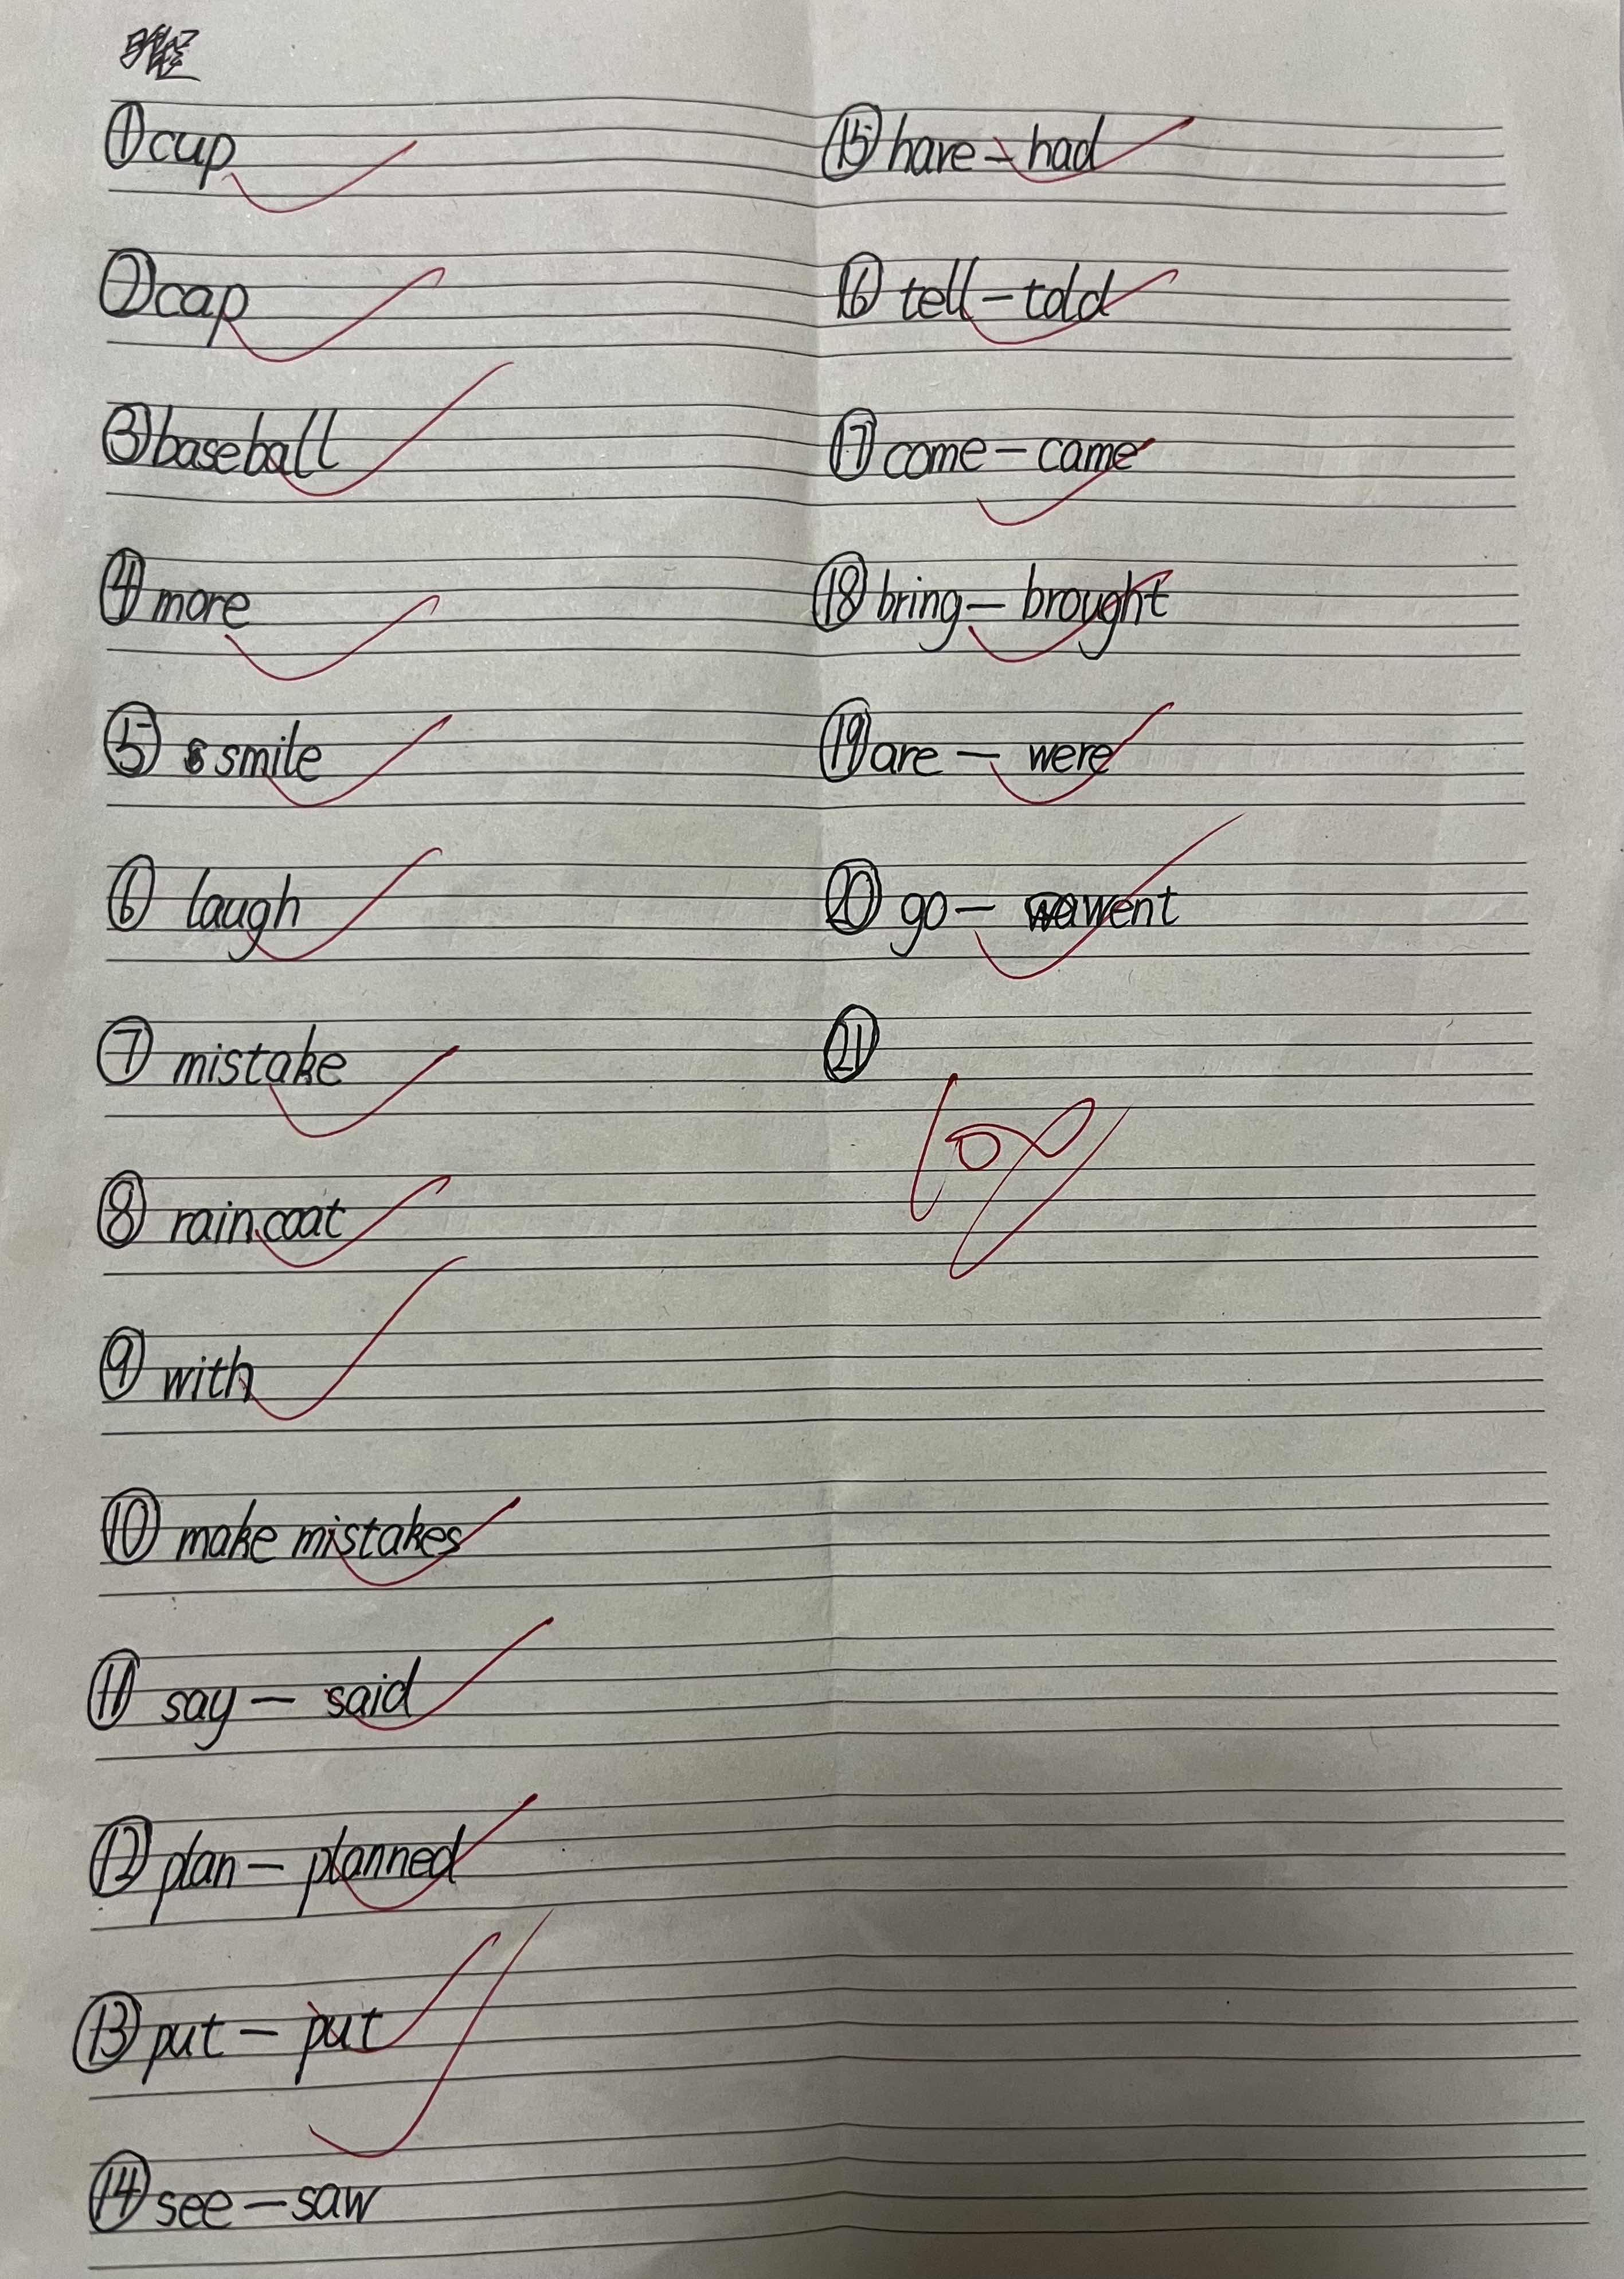 ① cup
② cap
③ baseball
④ more
⑤ smile
⑥ laugh
⑦ mistake
⑧ raincoat
⑨ with
⑩ make mistakes
⑪ say — said
⑫ plan — planned
⑬ put — put
⑭ see — saw
⑮ have — had
⑯ tell — told
⑰ come — came
⑱ bring — brought
⑲ are — were
⑳ go — went
㉑
100